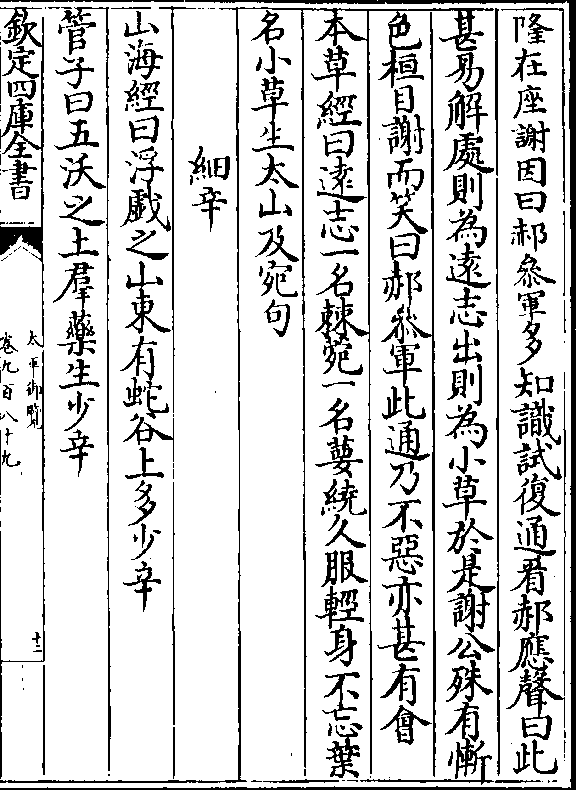 隆在座謝因曰郝叅軍多知識試復通看郝應聲曰此
甚易解處則為遠志出則為小草於是謝公殊有慚
色桓目謝而笑曰郝叅軍此通乃不惡亦甚有會
本草經曰遠志一名棘菀一名葽繞久服輕身不忘葉
名小草生太山及宛句
細辛
山海經曰浮戲之山東有蛇谷上多少辛
管子曰五沃之土羣藥生少辛
欽定四庫全書
太平御覽
卷九百八十九
十二